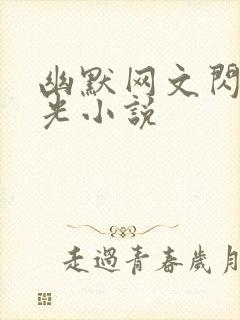 幽默网文閃
光小説
走過青春歲月